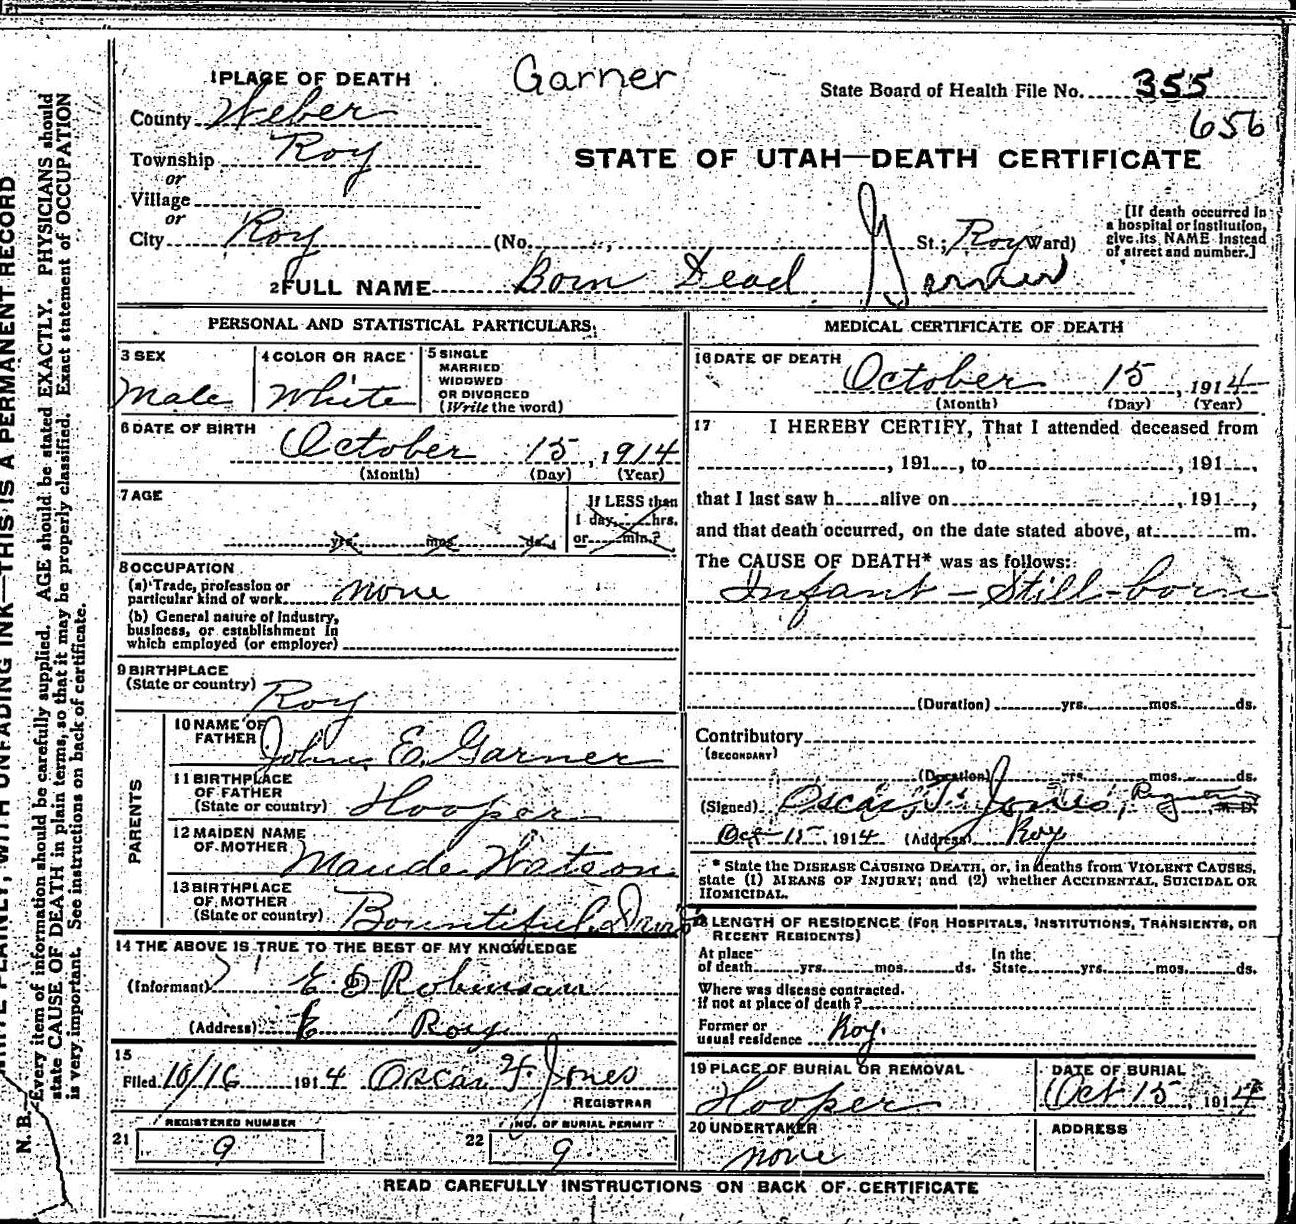 1 PLACE OF DEATH
Garner
State Board of Health File No. 355
656
County Weber
Township Roy
or
Village
or
City Roy (No. , St.; Roy Ward)
STATE OF UTAH—DEATH CERTIFICATE
[If death occurred in
a hospital or institution,
give its NAME instead
of street and number.]
2 FULL NAME Born Dead Garner
PERSONAL AND STATISTICAL PARTICULARS.
3 SEX
Male
4 COLOR OR RACE
White
5 SINGLE
MARRIED
WIDOWED
OR DIVORCED
(Write the word)
6 DATE OF BIRTH
October 15, 1914
(Month) (Day) (Year)
7 AGE
yrs. mos. ds.
If LESS than
1 day, hrs.
or min.?
8 OCCUPATION
(a) Trade, profession or
particular kind of work none
(b) General nature of industry,
business, or establishment in
which employed (or employer)
9 BIRTHPLACE
(State or country) Roy
PARENTS
10 NAME OF
FATHER John E. Garner
11 BIRTHPLACE
OF FATHER
(State or country) Hooper
12 MAIDEN NAME
OF MOTHER Maude Watson
13 BIRTHPLACE
OF MOTHER
(State or country) Bountiful, Davis
14 THE ABOVE IS TRUE TO THE BEST OF MY KNOWLEDGE
(Informant) E D Robinson
(Address) Roy
15
Filed 10/16 1914 Oscar F. Jones
REGISTRAR
REGISTERED NUMBER
21 9
NO. OF BURIAL PERMIT
22 9
MEDICAL CERTIFICATE OF DEATH
16 DATE OF DEATH
October 15, 1914
(Month) (Day) (Year)
17 I HEREBY CERTIFY, That I attended deceased from
, 191 , to , 191 ,
that I last saw h alive on , 191 ,
and that death occurred, on the date stated above, at m.
The CAUSE OF DEATH* was as follows:
Infant - Still-born
(Duration) yrs. mos. ds.
Contributory
(SECONDARY)
(Duration) yrs. mos. ds.
(Signed) Oscar F. Jones, M. D.
Oct-15-, 1914 (Address) Roy
* State the DISEASE CAUSING DEATH, or, in deaths from VIOLENT CAUSES,
state (1) MEANS OF INJURY; and (2) whether ACCIDENTAL, SUICIDAL OR
HOMICIDAL.
18 LENGTH OF RESIDENCE (FOR HOSPITALS, INSTITUTIONS, TRANSIENTS, OR
RECENT RESIDENTS)
At place
of death yrs. mos. ds.
In the
State yrs. mos. ds.
Where was disease contracted.
if not at place of death?
Former or
usual residence Roy.
19 PLACE OF BURIAL OR REMOVAL
Hooper
DATE OF BURIAL
Oct 15, 1914
20 UNDERTAKER
none
ADDRESS
READ CAREFULLY INSTRUCTIONS ON BACK OF CERTIFICATE
WRITE PLAINLY, WITH UNFADING INK—THIS IS A PERMANENT RECORD
N. B.—Every item of information should be carefully supplied. AGE should be stated EXACTLY. PHYSICIANS should
state CAUSE OF DEATH in plain terms, so that it may be properly classified. Exact statement of OCCUPATION
is very important. See instructions on back of certificate.